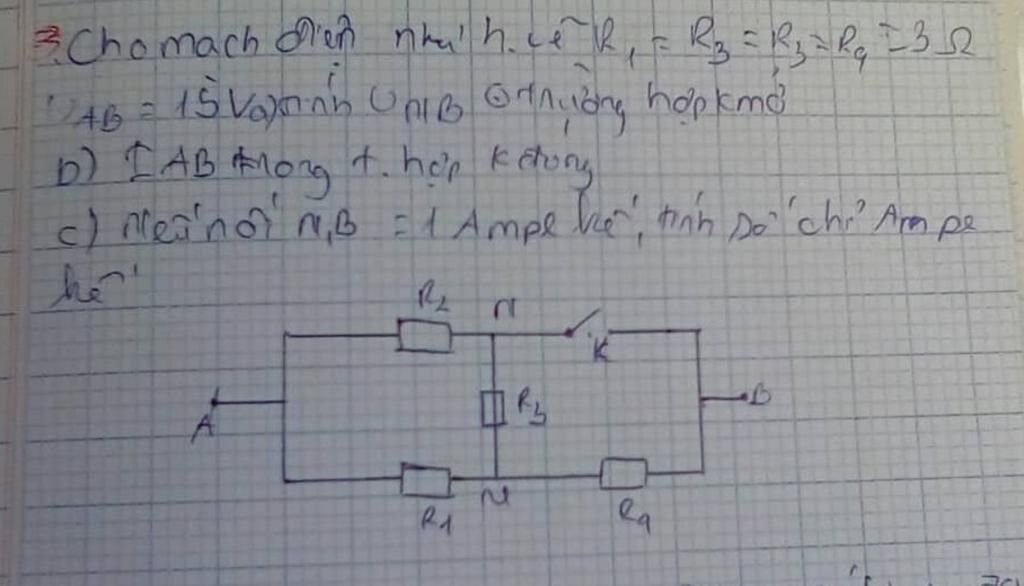 3. Cho mạch điện như h.vẽ R1 = R3 = R3 = R4 = 3 Ω
UAB = 15V a) tính UNB ở trường hợp k mở
b) IAB trong t. hợp K đóng
c) Nếu nối N,B = 1 Ampe kế, tính số chỉ Ampe
kế
R2 N
K
A R3 B
R1 N R4